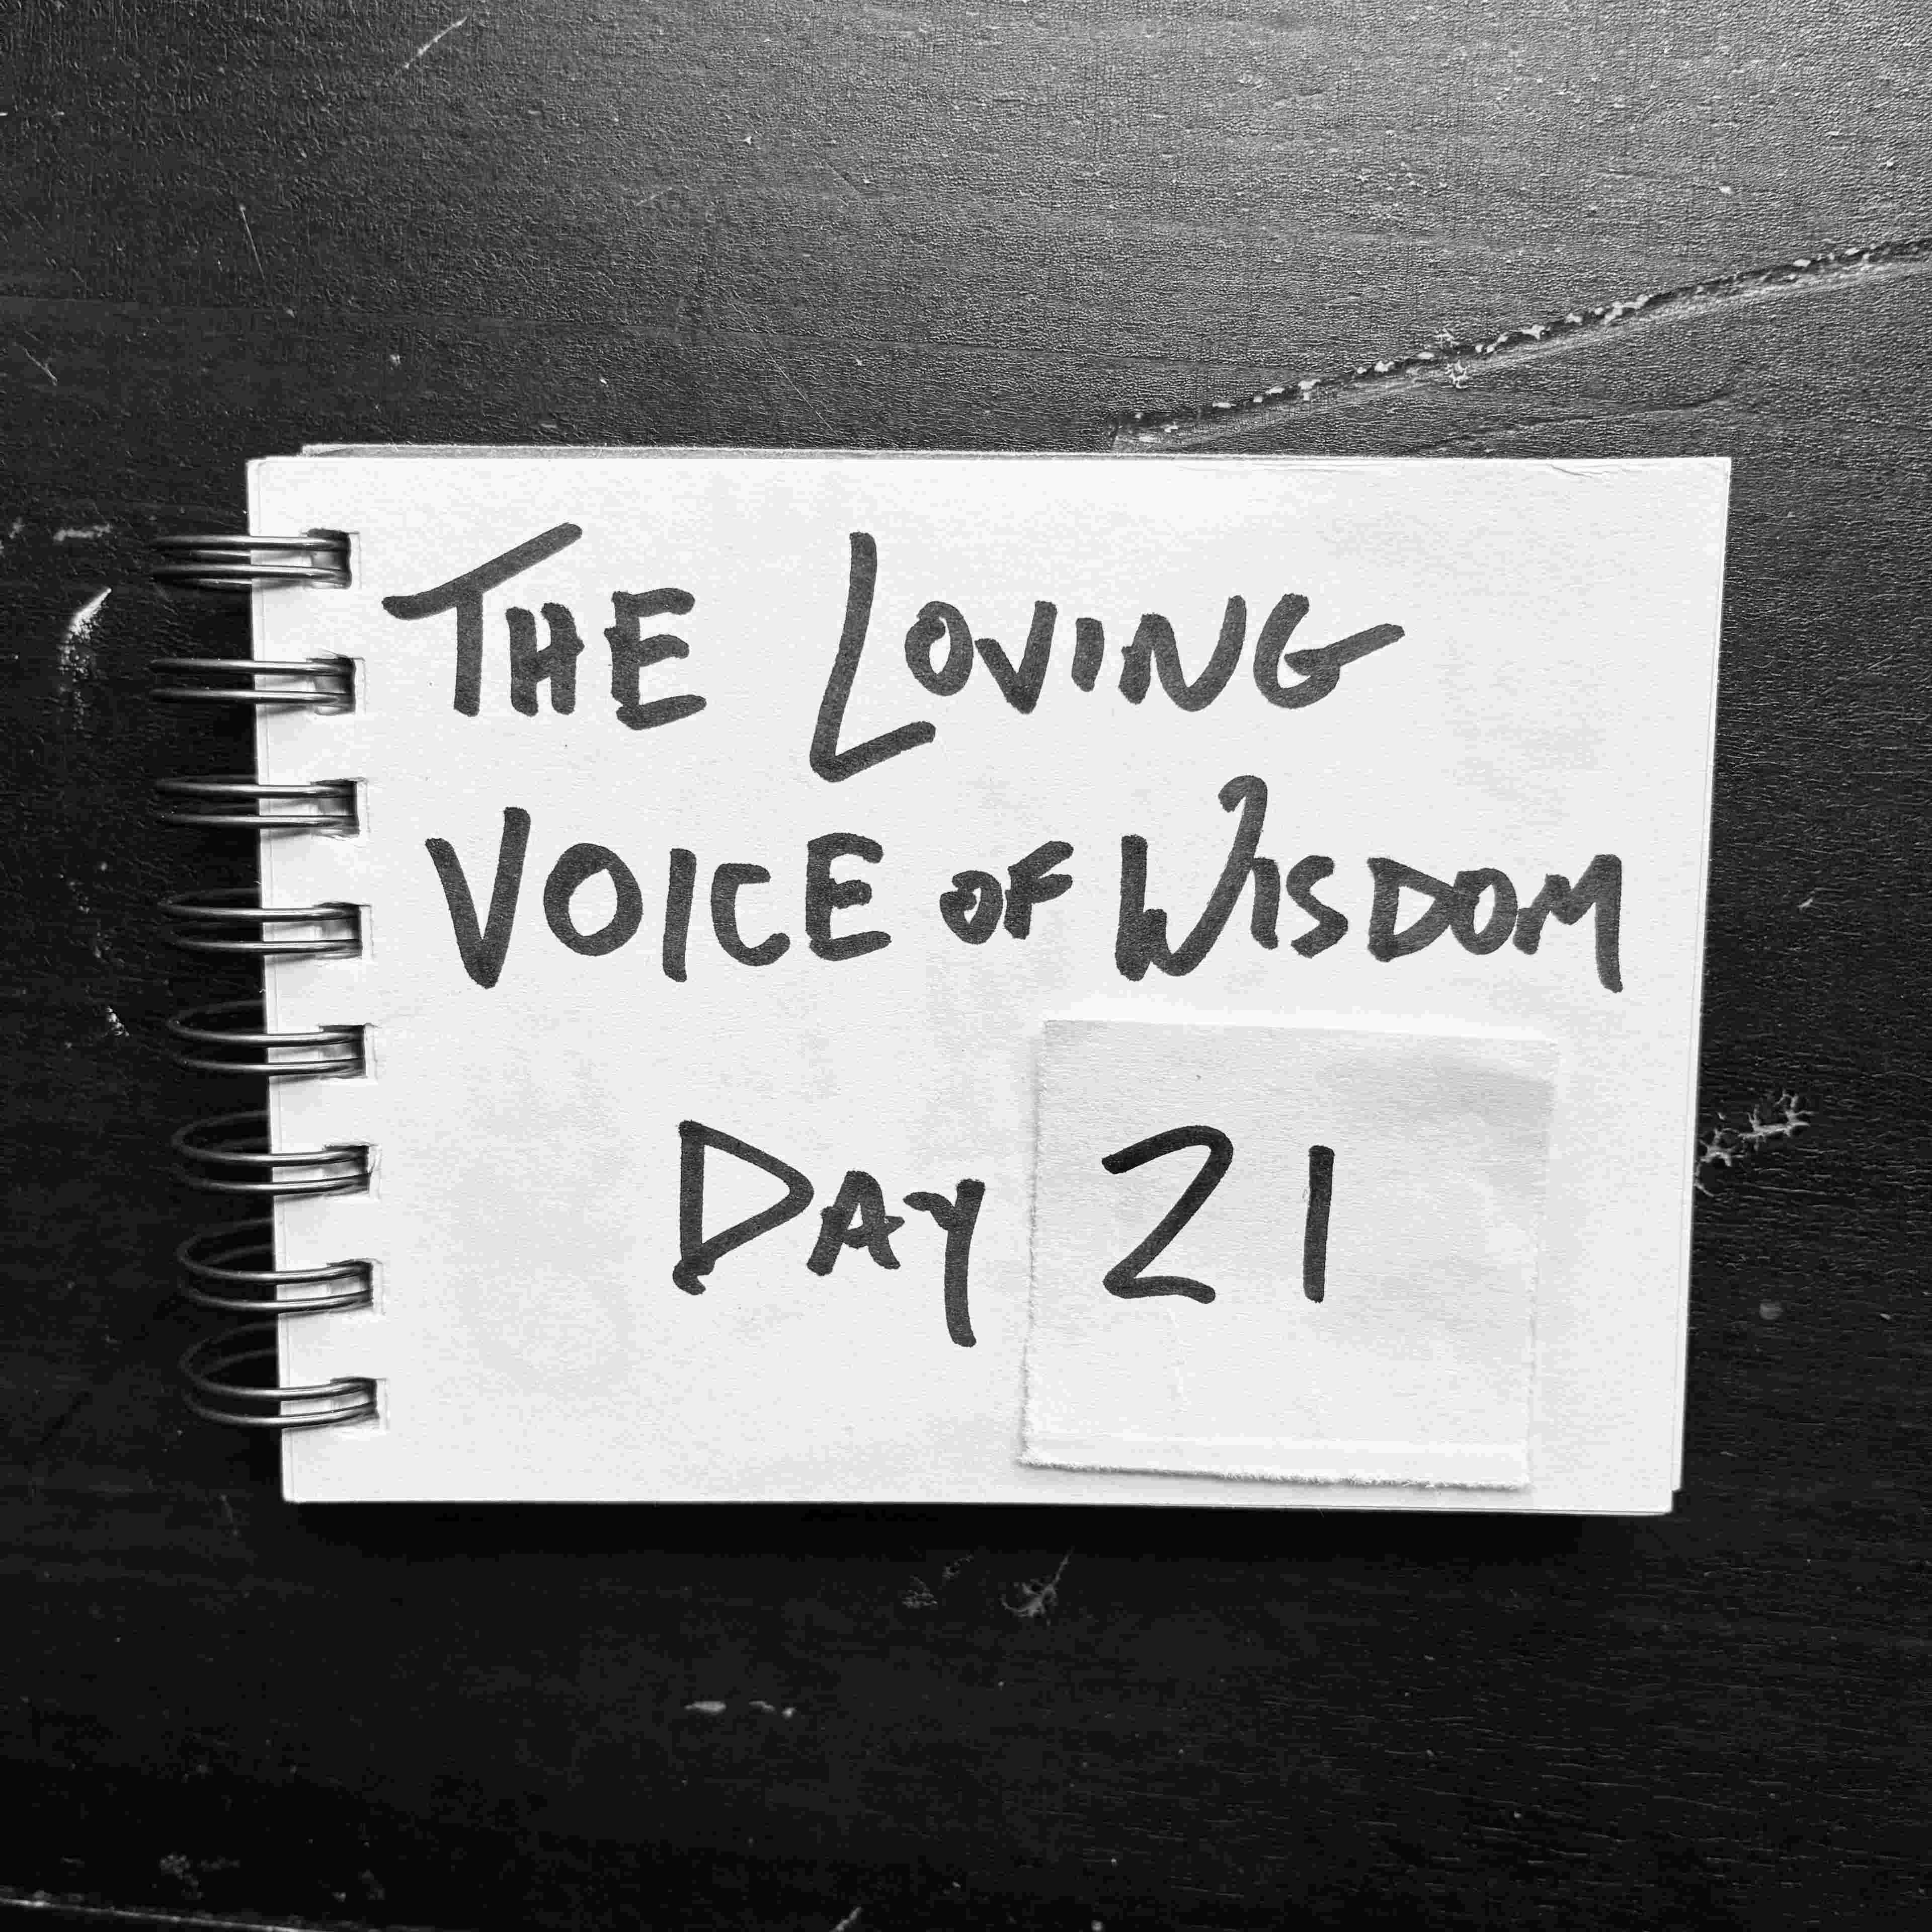 The Loving
Voice of Wisdom
Day 21